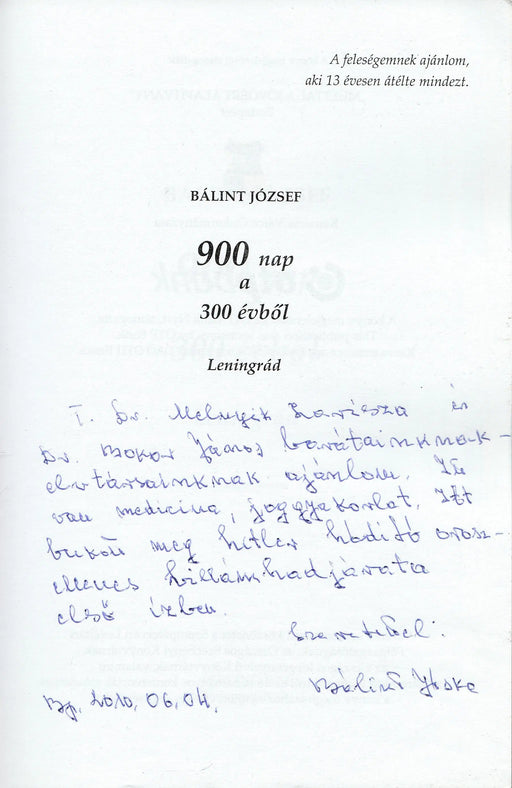 A feleségemnek ajánlom,
aki 13 évesen átélte mindezt.
BÁLINT JÓZSEF
900 nap
a
300 évből
Leningrád
T. Dr. Melnyik Larissza és
Dr. Bokor János barátainknak –
elvtársainknak ajánlom. Itt
van medicina, joggyakorlat. Itt
bukott meg hitler hódító orosz-
ellenes villámhadjárata
első ízben.
Szeretettel:
Bálint Jóska
Bp. 2010. 06. 04.